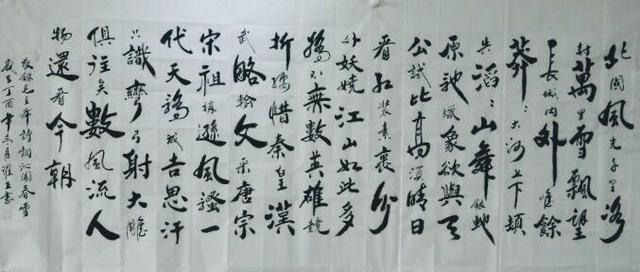 北國風光千里冰
封萬里雪飄望
長城内外惟餘
莽莽大河上下頓
失滔滔山舞銀蛇
原馳蠟象欲與天
公試比高須晴日
看紅裝素裹分
外妖娆江山如此多
嬌引無數英雄競
折腰惜秦皇漢
武略輸文采唐宗
宋祖稍遜風騷一
代天驕成吉思汗
只識彎弓射大雕
俱往矣數風流人
物還看今朝
敬錄毛主席詩詞沁園春雪
歲在丁酉年冬月